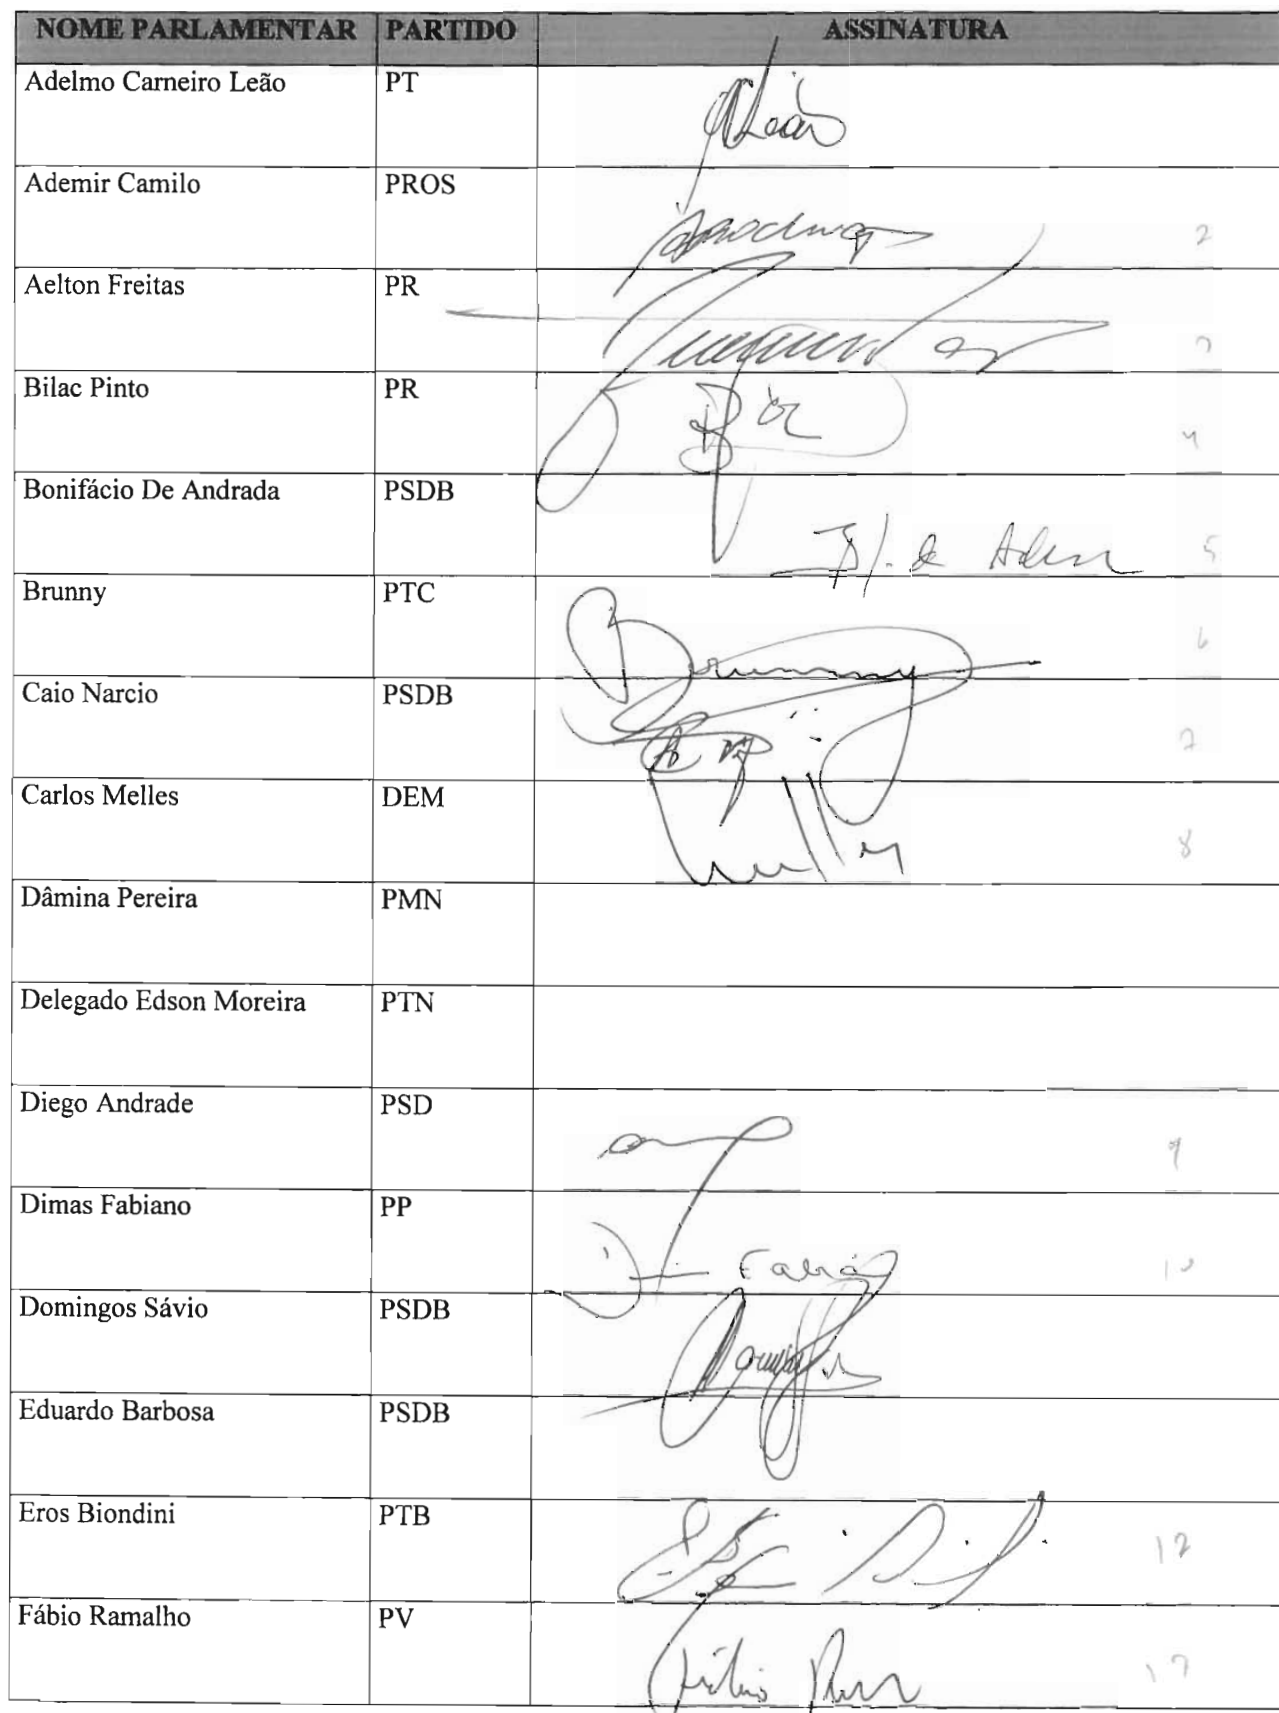 NOME PARLAMENTAR PARTIDO ASSINATURA
Adelmo Carneiro Leão PT
Ademir Camilo PROS 2
Aelton Freitas PR 3
Bilac Pinto PR 4
Bonifácio De Andrada PSDB 5
Brunny PTC Brunny 6
Caio Narcio PSDB 7
Carlos Melles DEM 8
Dâmina Pereira PMN
Delegado Edson Moreira PTN
Diego Andrade PSD 9
Dimas Fabiano PP 10
Domingos Sávio PSDB
Eduardo Barbosa PSDB
Eros Biondini PTB 12
Fábio Ramalho PV 13